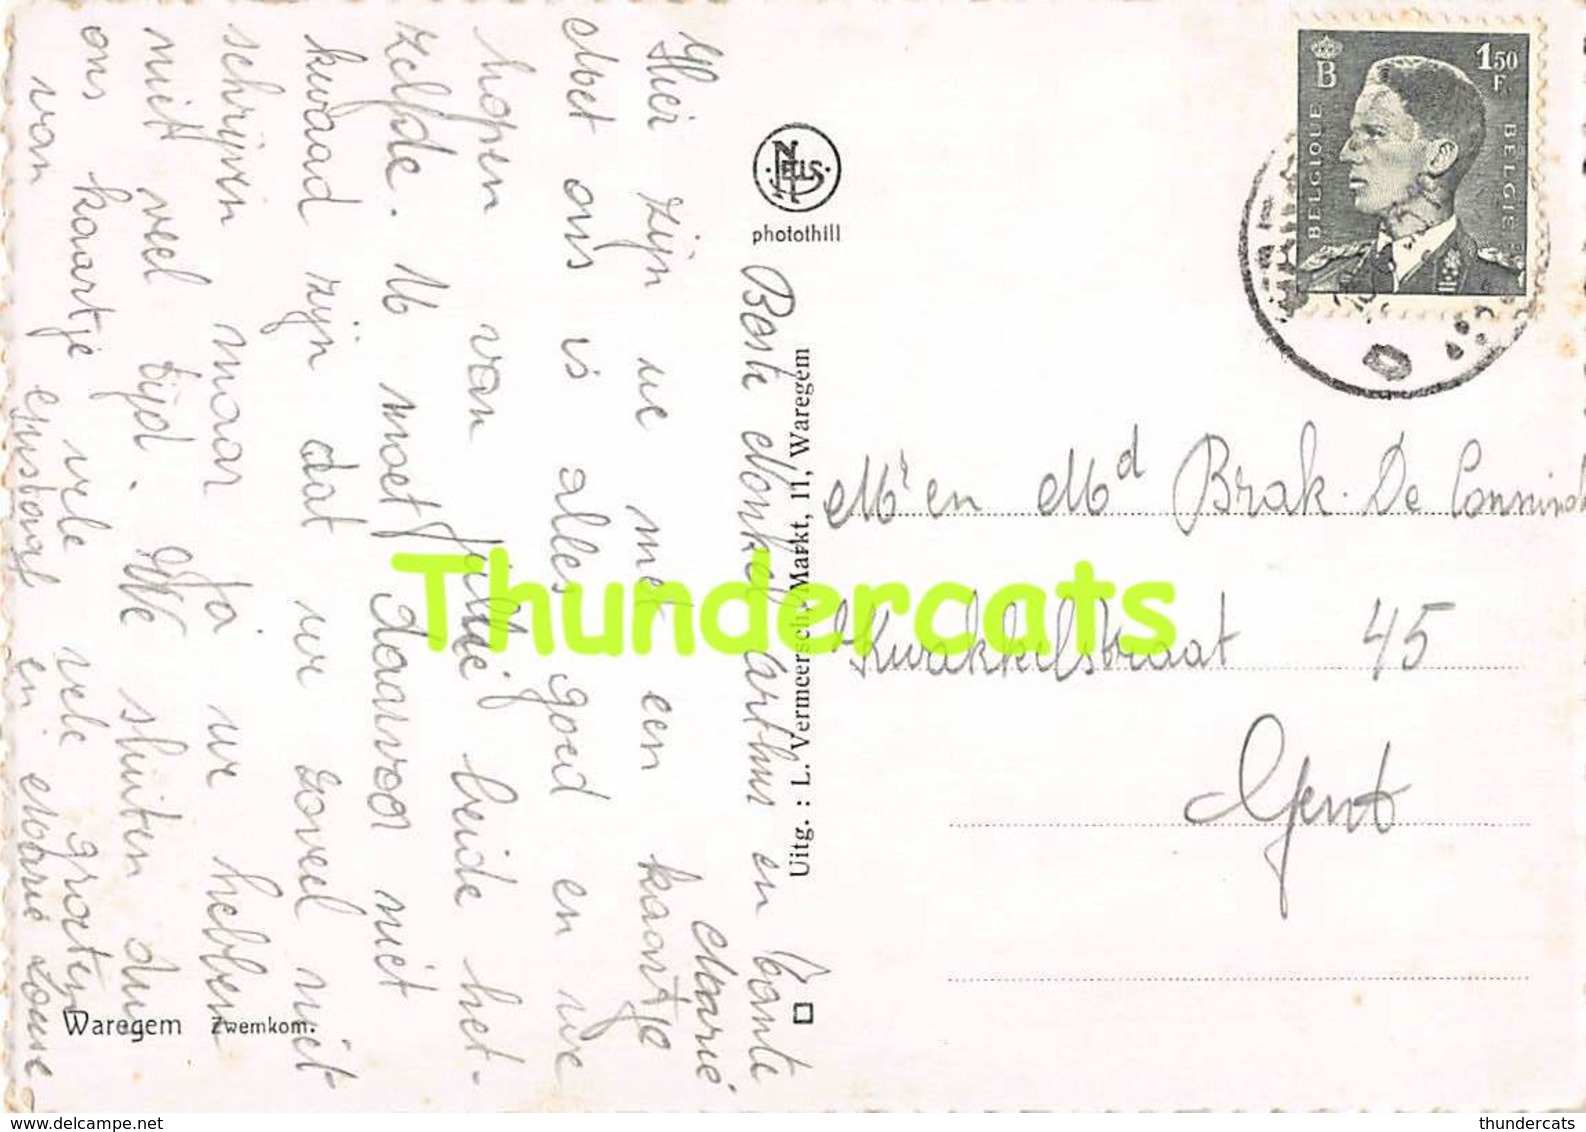 Beste Nonkel Arthur en Tante
Marie
Hier zijn we met een kaartje
Met ons is alles goed en we
hopen van jullie beide het-
zelfde. U moet daarvoor niet
kwaad zijn dat we zoveel niet
schrijven maar ja we hebben
niet veel tijd. We sluiten dus
ons kaartje vele vele groeten
van Gustaaf en Marie Louise
NELS
photothill
Uitg. : L. Vermeersch, Markt, 11, Waregem
Waregem Zwemkom.
B
1.50
F
BELGIQUE
BELGIE
Mr en Md Brak. De Conninck
Kwakkelstraat 45
Gent
Thundercats
www.delcampe.net
thundercats